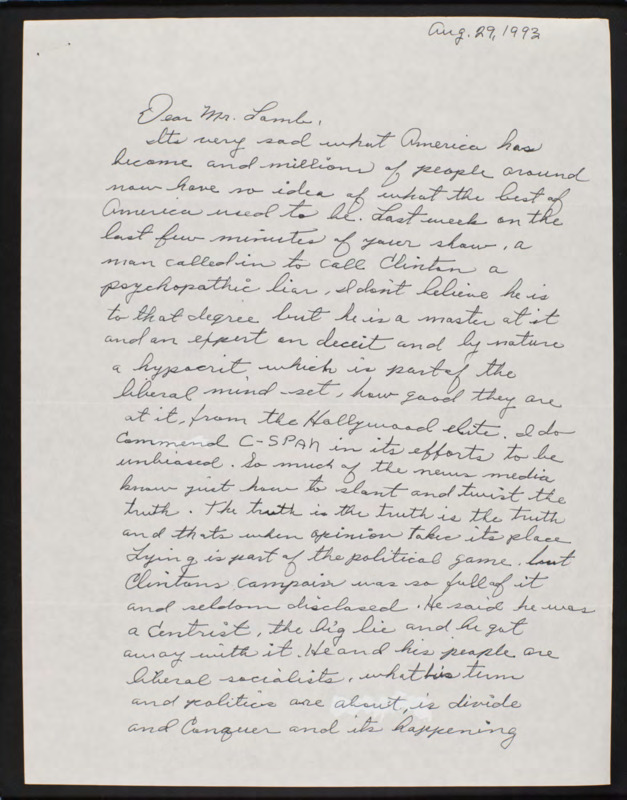 Aug. 29, 1993
Dear Mr. Lamb,
Its very sad what America has
become and millions of people around
now have no idea of what the best of
America used to be. Last week on the
last few minutes of your show, a
man called in to call Clinton a
psychopathic liar, I don't believe he is
to that degree but he is a master at it
and an expert on deceit and by nature
a hypocrit which is part of the
liberal mind-set, how good they are
at it, from the Hollywood elite. I do
commend C-SPAN in its efforts to be
unbiased. So much of the news media
know just how to slant and twist the
truth. The truth is the truth is the truth
and thats when opinion takes its place
Lying is part of the political game, but
Clintons campain was so full of it
and seldom disclosed. He said he was
a Centrist, the big lie and he got
away with it. He and his people are
liberal socialists, what his term
and politics are about, is divide
and Conquer and its happening